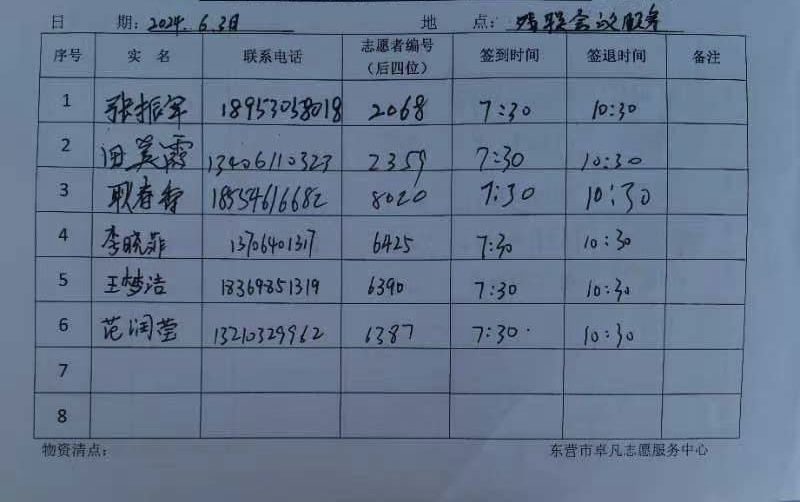 日 期: 2024. 6.3日 地 点: 残联会议服务
序号 实 名 联系电话 志愿者编号(后四位) 签到时间 签退时间 备注
1 张振军 18953058018 2068 7:30 10:30
2 田英霞 13406110323 2359 7:30 10:30
3 耿春香 18554616682 8020 7:30 10:30
4 李晓菲 13706401317 6425 7:30 10:30
5 王梦洁 18369851319 6390 7:30 10:30
6 范润莹 13210329962 6387 7:30 10:30
7
8
物资清点: 东营市卓凡志愿服务中心